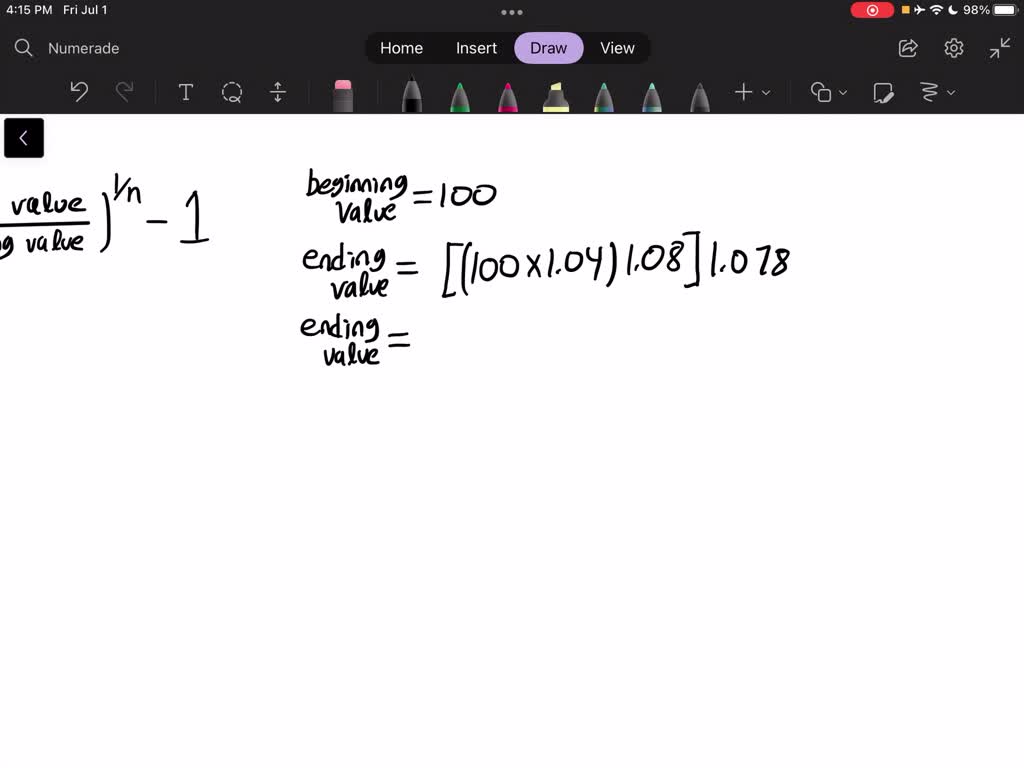 4:15 PM Fri Jul 1
98%
Numerade
Home Insert Draw View
T
value
g value
)^1/n - 1
beginning
value = 100
ending
value = [(100 x 1.04) 1.08] 1.078
ending
value =